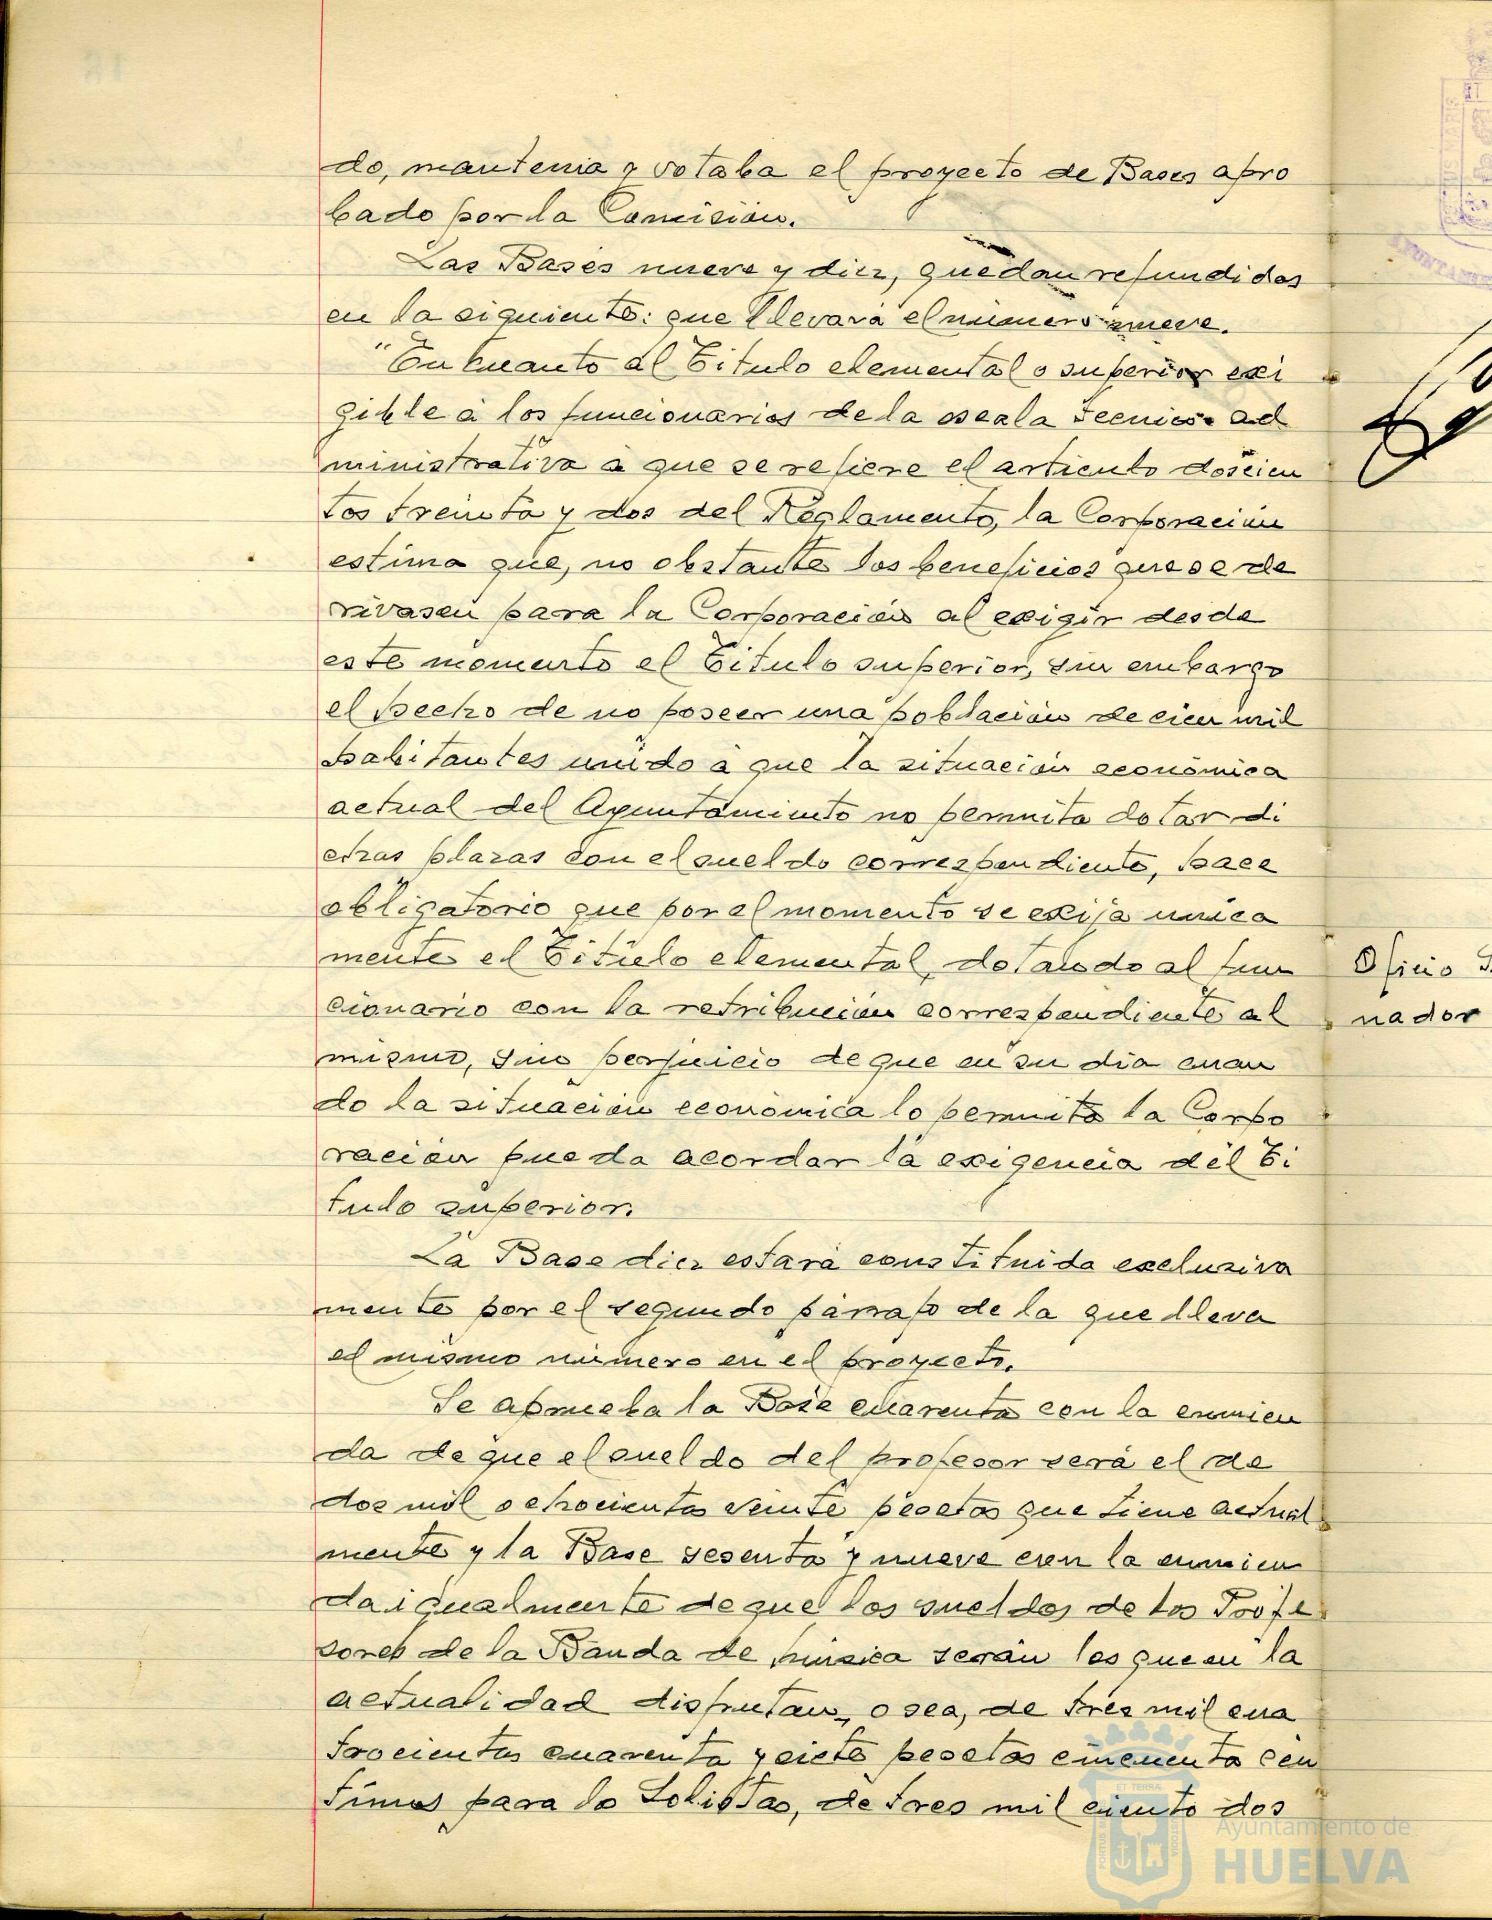 do, mantenia y votaba el proyecto de Bases apro
bado por la Comisión.
Las Bases nueve y diez, quedan refundidas
en la siguiente: que llevará el número nueve.
"En cuanto al Titulo elemental o superior exi
gible á los funcionarios de la escala tecnico ad
ministrativa á que se refiere el articulo doscien
tos treinta y dos del Reglamento, la Corporación
estima que, no obstante los beneficios que se de
rivasen para la Corporación al exigir desde
este momento el Titulo superior, sin embargo
el hecho de no poseer una población de cien mil
habitantes unido á que la situación económica
actual del Ayuntamiento no permita dotar di
chas plazas con el sueldo correspondiente, hace
obligatorio que por el momento se exija unica
mente el Titulo elemental, dotando al fun
cionario con la retribución correspondiente al
mismo, sin perjuicio de que en su dia cuan
do la situación económica lo permita la Corpo
ración pueda acordar la exigencia del Ti
tulo superior.
La Base diez estará constituida exclusiva
mente por el segundo párrafo de la que lleva
el mismo número en el proyecto.
Se aprueba la Base cuarenta con la enmien
da de que el sueldo del profesor será el de
dos mil ochocientas veinte pesetas que tiene actual
mente y la Base sesenta y nueve con la enmien
da igualmente de que los sueldos de los Profe
sores de la Banda de música serán los que en la
actualidad disfrutan, o sea, de tres mil cua
trocientas cuarenta y siete pesetas cincuenta cén
timos para lo Solistas, de tres mil ciento dos
Oficio
nador
ET TERRA
Ayuntamiento de
HUELVA